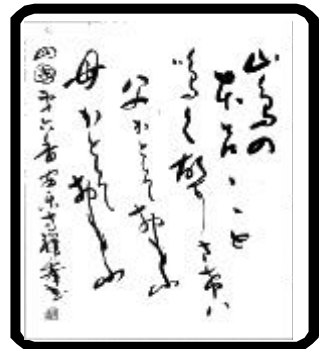 山鳥の
ほろ／＼と
鳴く声きけハ
父かとそおもふ
母かとそおもふ
四国第六番安楽寺